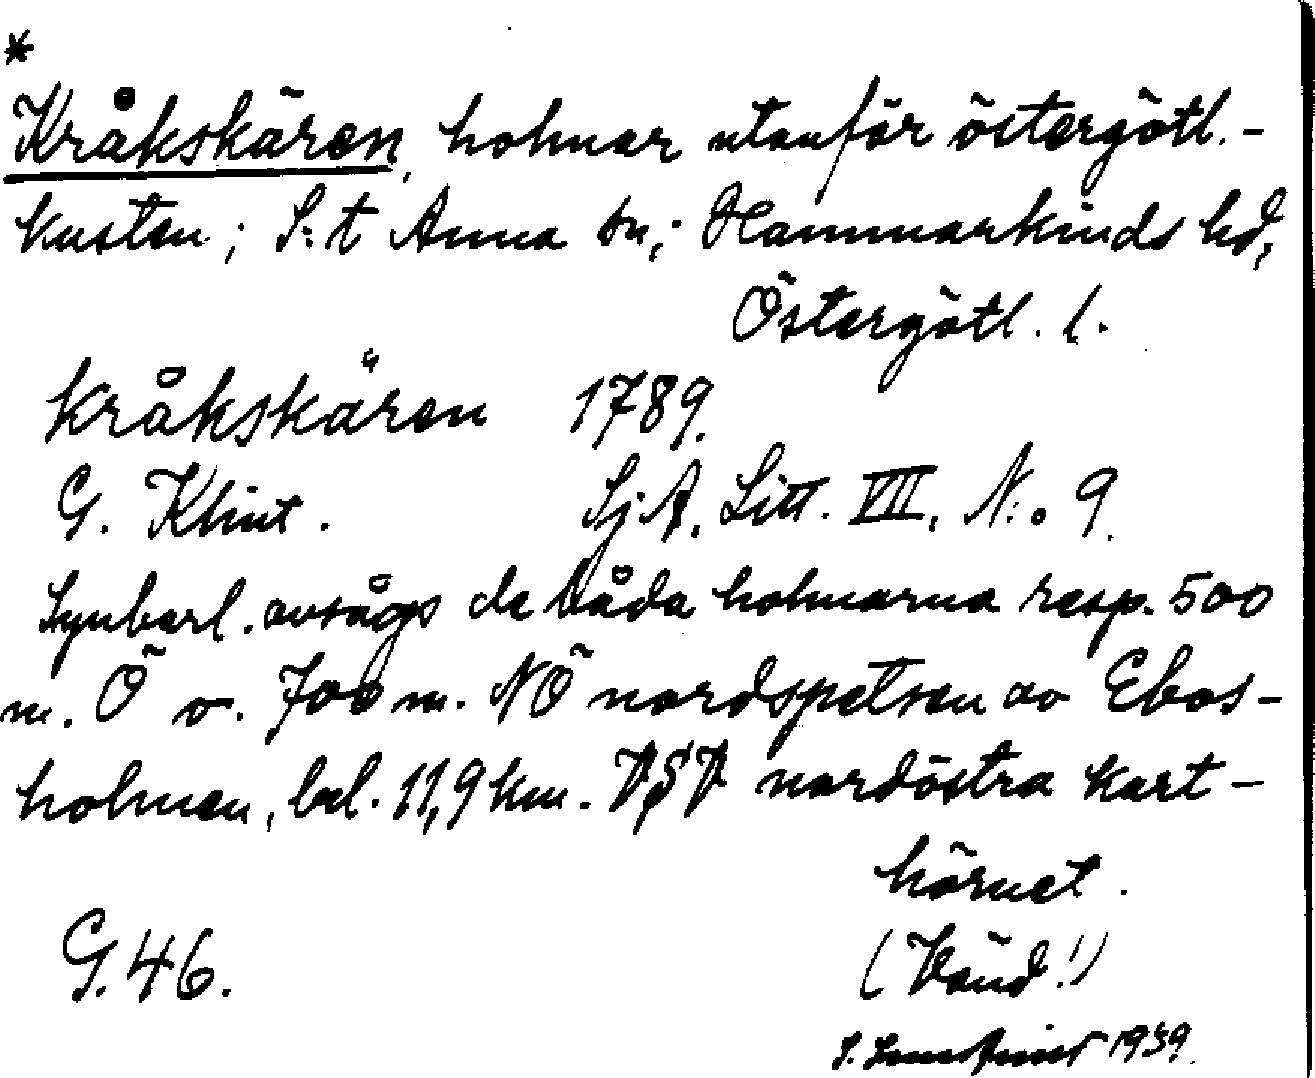 *
Kråkskären, holmar utanför östergötl.-
kusten; S:t Anna sn; Hammarkinds hd,
Östergötl. l.
Kråkskären 1789.
G. Klint. SjA. Litt. VII. N:o 9.
Synbarl. avsågs de båda holmarna resp. 500
m. Ö o. 700 m. NÖ nordspetsen av Ebos-
holmen, bel. 11,9 km. VSV nordöstra kart-
hörnet.
(Vänd!)
G. 46.
S. 1939.